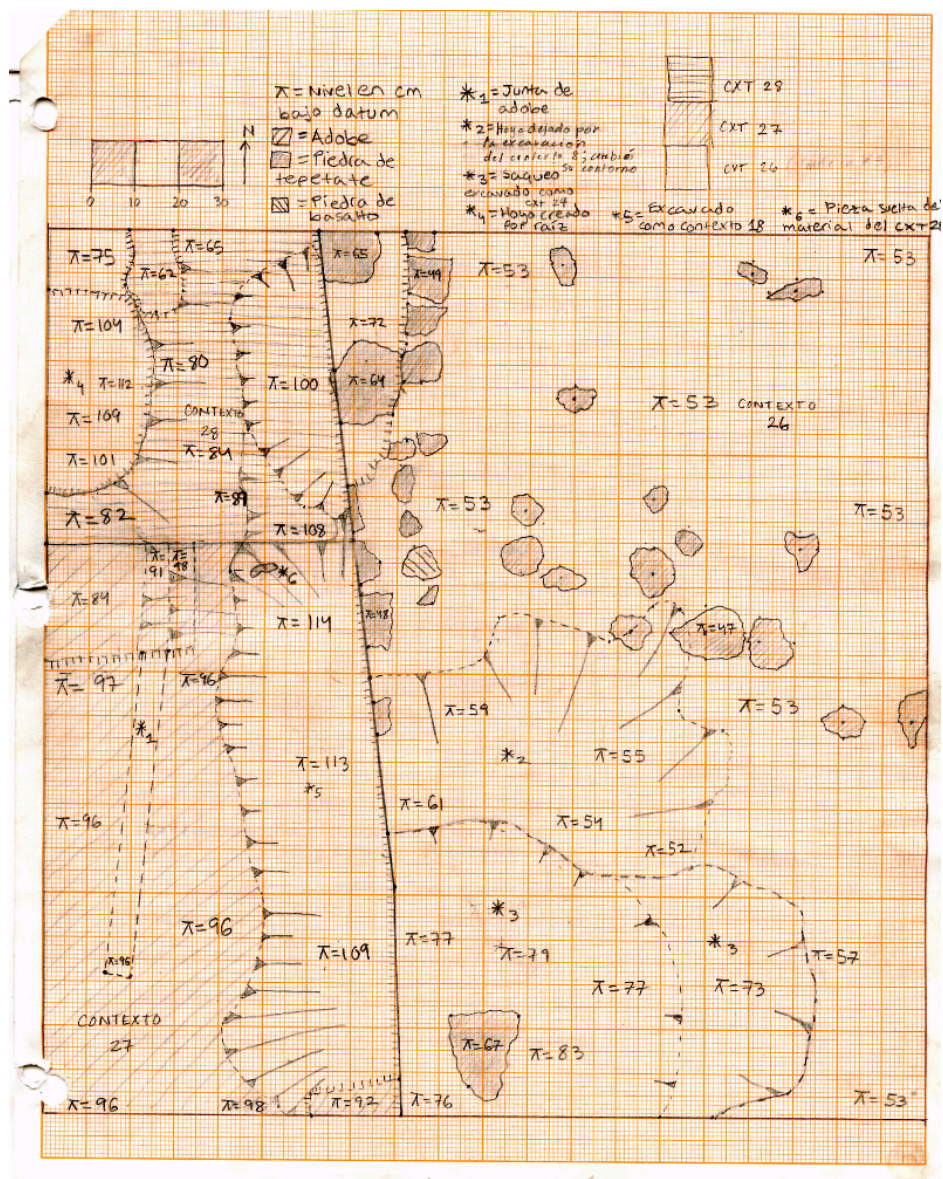 ⊼ = Nivel en cm
bajo datum
= Adobe
= Piedra de
tepetate
= Piedra de
basalto
N
0 10 20 30
*1 = Junta de
adobe
*2 = Hoyo dejado por
la excavación
del contexto 8; cambió
su contorno
*3 = Saqueo
excavado como
cxt 24
*4 = Hoyo creado
por raíz
*5 = Excavado
como contexto 18
*6 = Pieza suelta del
material del CXT 28
CXT 28
CXT 27
CXT 26
⊼=75
⊼=62
⊼=65
⊼=65
⊼=49
⊼=53
⊼=53
⊼=104
⊼=72
⊼=80
*4 ⊼=112
⊼=100
⊼=64
⊼=53 CONTEXTO
26
⊼=109
CONTEXTO
28
⊼=101
⊼=84
⊼=89
⊼=53
⊼=53
⊼=82
⊼=108
⊼=91
⊼=98
*6
⊼=84
⊼=114
⊼=48
⊼=47
⊼=97
⊼=96
⊼=59
⊼=53
*1
*2
⊼=55
⊼=113
*5
⊼=61
⊼=96
⊼=54
⊼=52
*3
⊼=96
⊼=109
⊼=77
⊼=79
*3
⊼=57
⊼=96
⊼=77
⊼=73
CONTEXTO
27
⊼=67
⊼=83
⊼=96
⊼=98
⊼=92
⊼=76
⊼=53